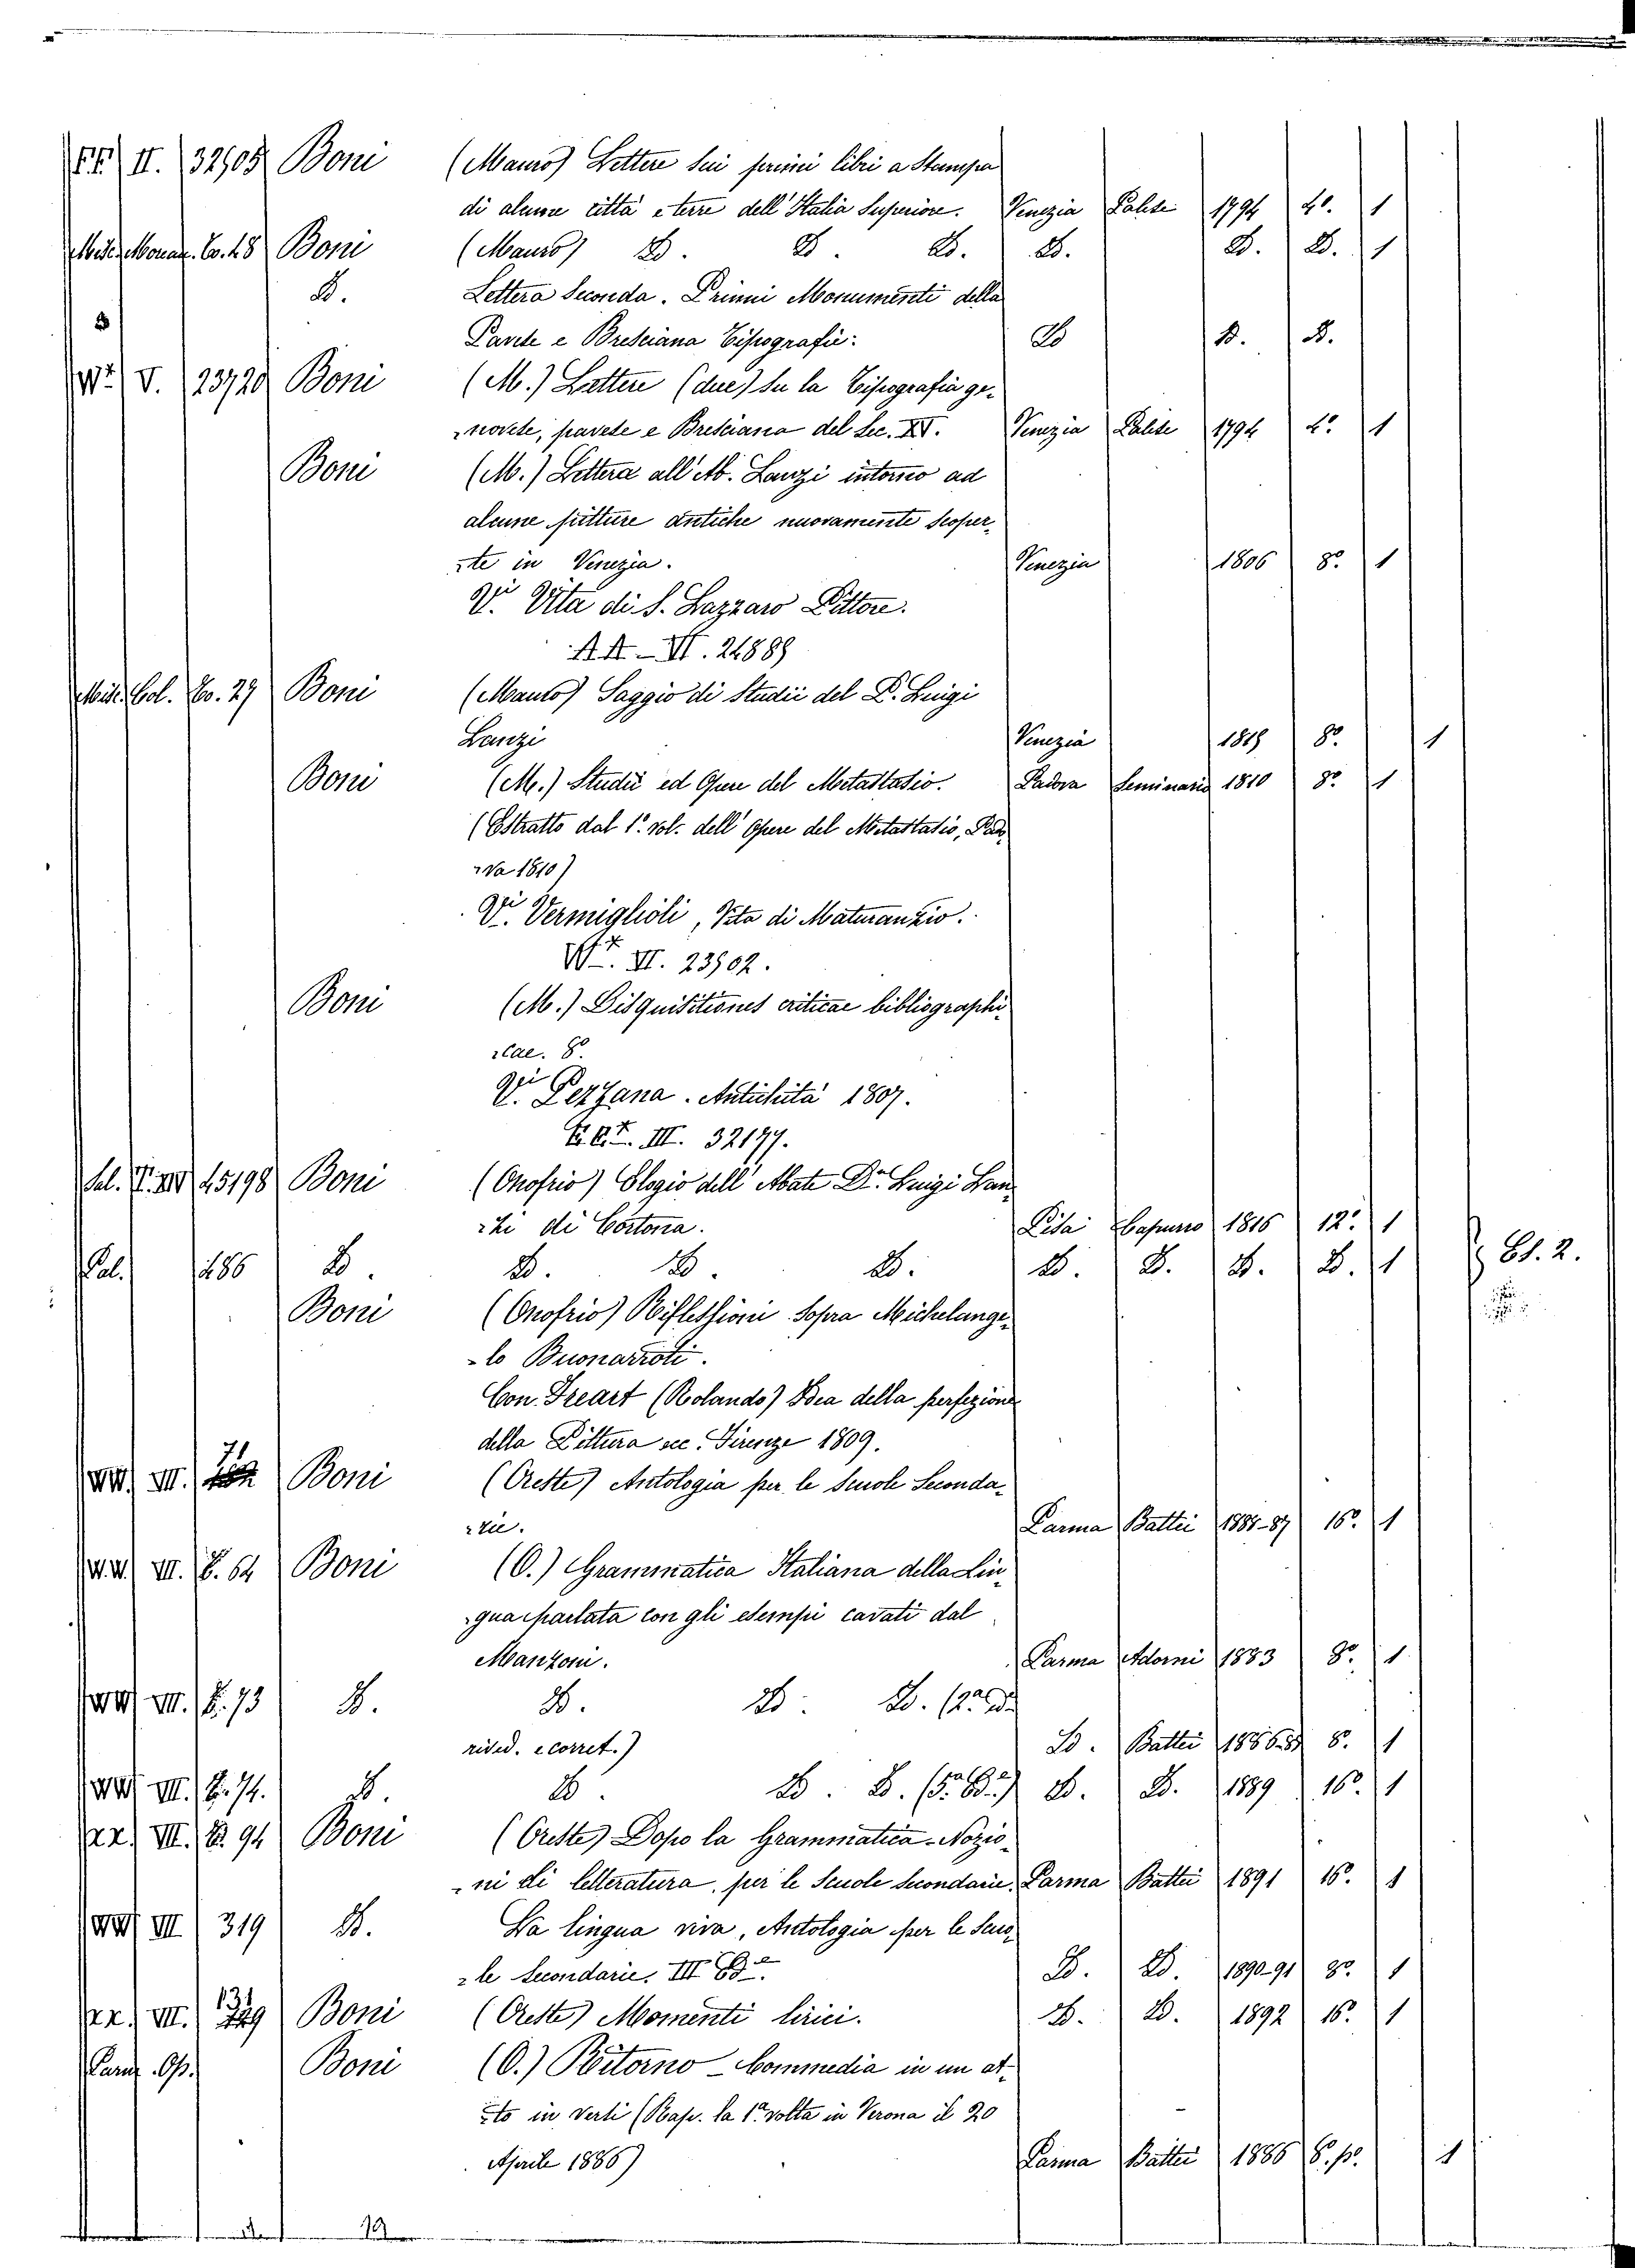 II. 32905 Boni (Mauro) Lettere sui primi libri a Stampa
di alcune città e terre dell'Italia Superiore. Venezia Palese 1794 4º. 1
Boni (Mauro) D. D. D. D. D. D. 1
D. Lettera Seconda. Primi Monumenti della
Pavese e Bresciana Tipografia. D D. D.
V. 23720 Boni (M.) Lettere (due) su la Tipografia ge-
novese, pavese e Bresciana del Sec. XV. Venezia Palese 1794 4º 1
Boni (M.) Lettera all'Ab. Lanzi intorno ad
alcune pitture antiche nuovamente scoper-
te in Venezia. Venezia 1806 8º 1
Vi. Vita di S. Lazzaro Pittore.
AA - VI. 24889
Boni (Mauro) Saggio di Studii del P. Luigi
Lanzi Venezia 1815 8º 1
Boni (M.) Studii ed Opere del Metastasio. Padova Seminario 1810 8º 1
(Estratto dal 1º. vol. dell'Opere del Metastasio, Pado-
va 1810)
Vi. Vermiglioli, Vita di Maturanzio.
VI. 23902.
Boni (M.) Disquisitiones criticae bibliographi-
cae. 8º.
Vi Pezzana. Antichità 1807.
III. 32177.
45198 Boni (Onofrio) Elogio dell'Abate Dn. Luigi Lan-
zi di Cortona. Pisa Capurro 1816 12º. 1
Pal. 1486 D. D. D. D. D. D. D. D. 1 Es. 2.
Boni (Onofrio) Riflessioni sopra Michelange-
lo Buonarroti.
Con. Freart (Rolando) Idea della perfezione
della Pittura ec. Firenze 1809.
VII. 71 Boni (Oreste) Antologia per le Scuole Seconda-
rie. Parma Battei 1885-87 16º. 1
VII. 64 Boni (O.) Grammatica Italiana della Lin-
gua parlata con gli esempi cavati dal
Manzoni. Parma Adorni 1883 8º. 1
VII. 73 D. D. D. D. (2ª Ed.
rived. e corret.) D. Battei 8. 1
VII. 74. D. D. D. D. D. D. 1889 16º. 1
VII. 94 Boni (Oreste) Dopo la Grammatica - Nozio-
ni di letteratura, per le Scuole Secondarie. Parma Battei 1891 16º. 1
VII 319 D. La lingua viva, Antologia per le Scuo-
le Secondarie. III Ed. D. D. 1890-91 8º. 1
VII. 131 Boni (Oreste) Momenti lirici. D. D. 1892 16º. 1
Boni (O.) Ritorno - Commedia in un at-
to in versi (Rap. la 1ª volta in Verona il 20
Aprile 1886) Parma Battei 1886 8. p. 1
19